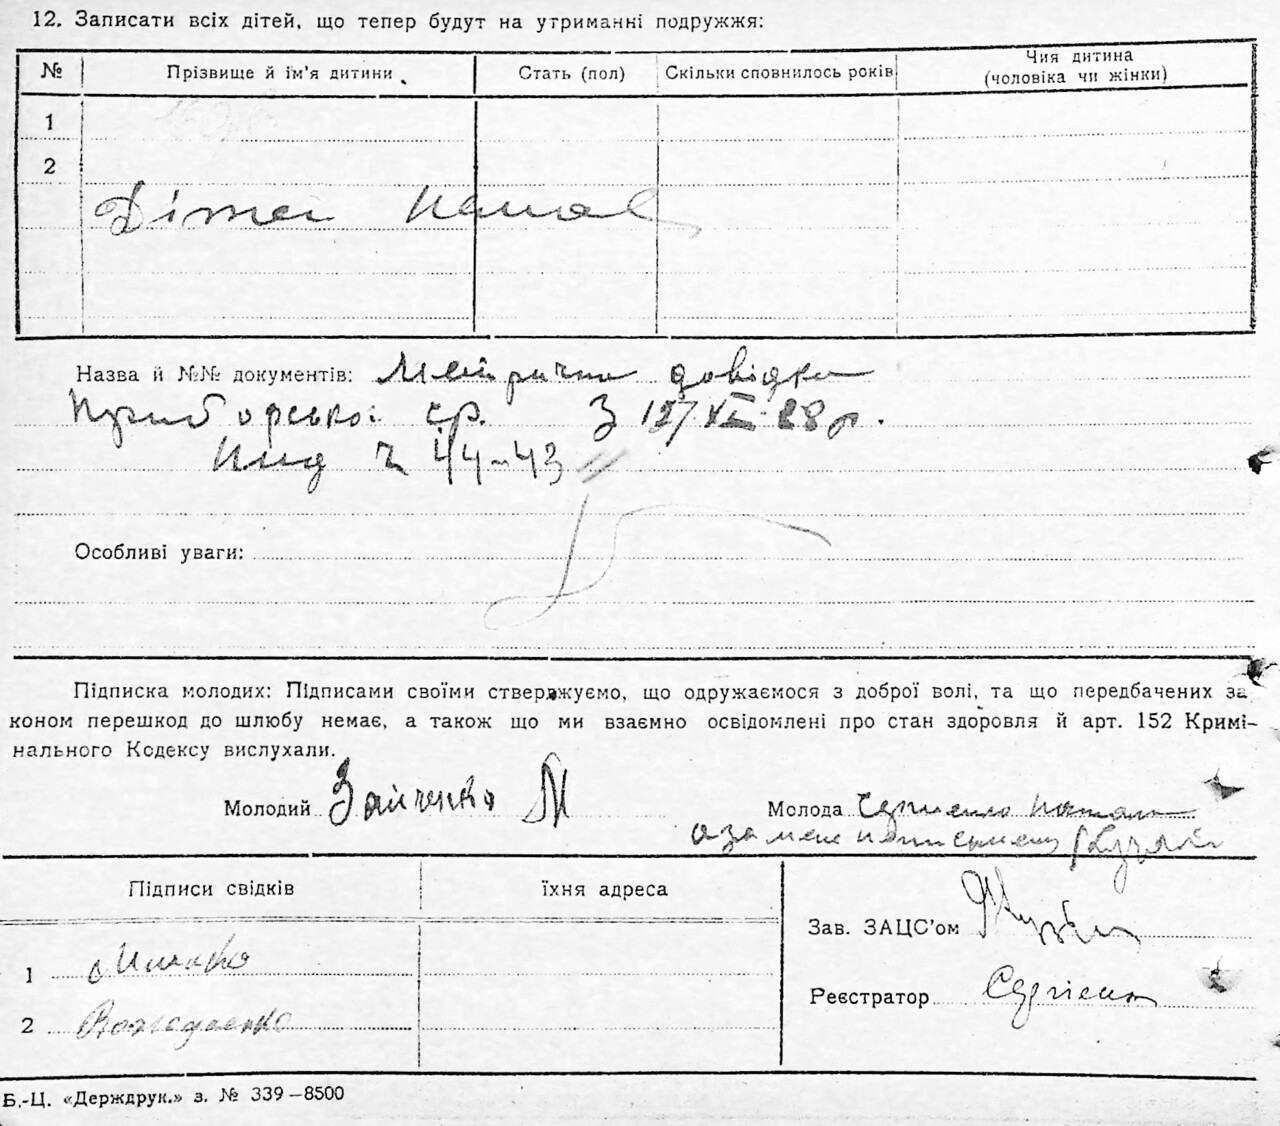 12. Записати всіх дітей, що тепер будут на утриманні подружжя:
№ Прізвище й ім'я дитини Стать (пол) Скільки сповнилось років Чия дитина (чоловіка чи жінки)
1
2
Дітей немає
Назва й №№ документів: Метрична довідка
Приборської с.р. З XII 28 р.
44-43
Особливі уваги:
Підписка молодих: Підписами своїми стверджуємо, що одружаємося з доброї волі, та що передбачених за
коном перешкод до шлюбу немає, а також що ми взаємно освідомлені про стан здоровля й арт. 152 Кримі-
нального Кодексу вислухали.
Молодий Зайченко М Молода Сергиенко
Підписи свідків їхня адреса
Зав. ЗАЦС'ом
1
Реєстратор Сергієнко
2
Б.-Ц. «Держдрук.» з. № 339–8500